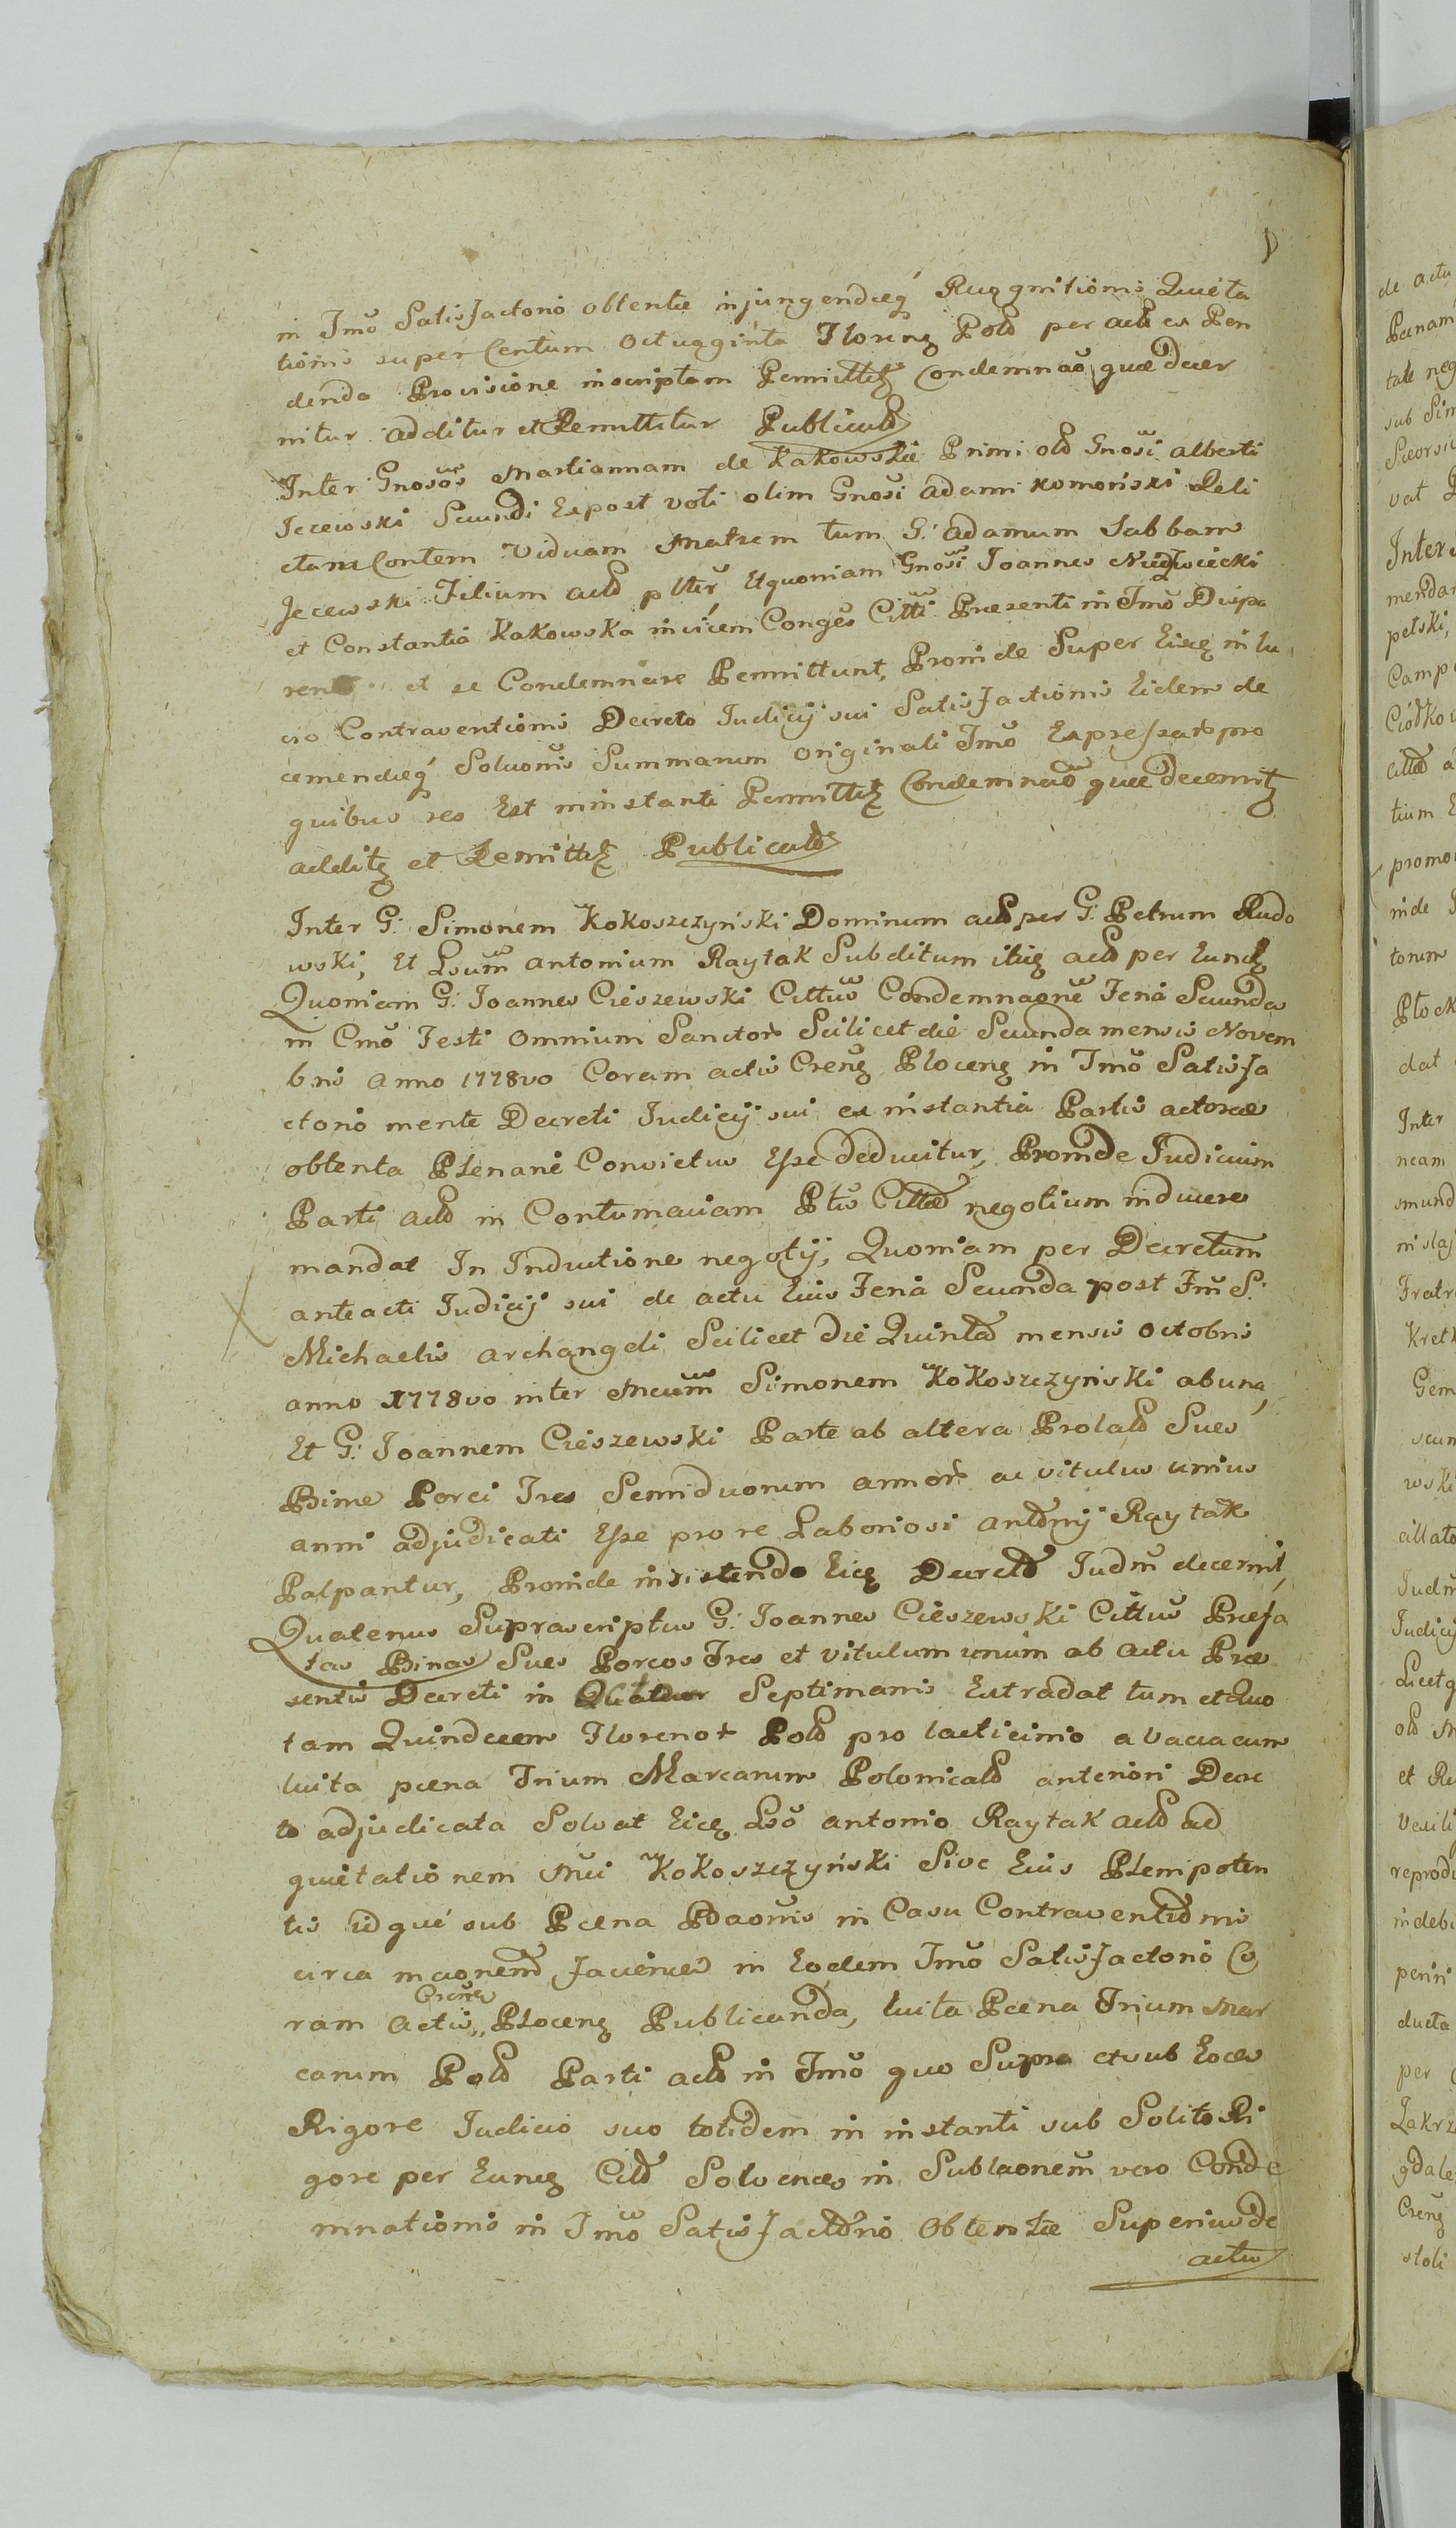 in Tmō Satisfactorio obtentæ injungendæq́ Recognitionis Quieta
tionis super Centum Octugginta Florenꝫ Pold per actō ex Pen
denda Provisione inscriptam Permittitꝫ Condemnaō quæ decer
nitur additur et Remittitur Publicatō
Inter Gnosōs Martiannam de Kakowskie Primi old Gnosī Alberti
Jezewski Scundi Expost voti olim Gnosi Adami Komoński Reli
ctam Contem Viduam Matrem tum G: Adamum Sabbam
Jezewski Filium actō pltēr Etquoniam Gnosī Joannes Niedzwiecki
et Constantia Kakowska invicem Congēs Cittī Præsenti in Tmō Dispa
rent et se Condemnare Permittunt, Proinde Super Eisꝫ in lu
cro Contraventionis Decreto Judicij sui Satisfactionis Eidem de
cernendæq́ Soluonīs Summarum Originali Tmō Expressar pro
quibus res Est ininstanti Permittitꝫ Condemnaō quæ decernitꝫ
additꝫ et Remittitꝫ Publicatō
Inter G: Simonem Kokoszczyński Dominum actō per G: Petrum Rudo
wski, Et Lsum̄ Antonium Raytak Subditum illiꝫ actō per Eundꝫ
Quoniam G: Joannes Cieszewski Cittus Condemnaonē Feria Scunda
in Cmō Festi Omnium Sanctor Scilicet die Scunda mensis Novem
bris Anno 1778vo Coram actis Crenꝫ Plocenꝫ in Tmō Satisfa
ctorio mente Decreti Judicij sui ex instantia Partis actoreæ
obtenta Plenarie Convictus Esse deducitur, Proinde Judicium
Parti actō in Contumaciam Ptis Cittæ negotium inducere
mandat In Inductione negotij, Quoniam per Decretum
anteacti Judicij sui de actu Eius Feria Scunda post Fm̄ S:
Michaelis Archangeli Scilicet die Quinta mensis Octobris
anno 1778vo inter Mcum̄ Simonem Kokoszczyński abuna,
Et G: Joannem Cieszewski Parte ab altera Prolatō Sues
Binæ Porci Tres Semiduorum annor ac vitulus unius
anni adjudicati Esse pro re Laboriosi Antonij Raytak
Palpantur, Proinde insistendo Eicꝫ Decretō Judm̄ decernit,
Quatenus Suprascriptus G: Joannes Cieszewski Cittus Præfa
tas Binas Sues Porcos Tres et vitulum unum ab actu Præ
sentis Decreti in Quatuor Septimanis Extradat tum et Quo
tam Quindecem Florenor Pold pro lacticinio a Vacca cum
luita pœna Trium Marcarum Polonicalō anteriori Decre
to adjudicata Solvat Eicꝫ Lsō Antonio Raytak actō ad
quietationem Mci Kokoszczyński Sive Eius Plenipoten
tis idque sub Pœna Pdaonīs in Casu Contraventionis
circa mcionem̄ facienda in Eodem Tmō Satisfactorio Co
ram Actis Crenꝫ Plocenꝫ Publicanda, luita Pœna Trium Mar
carum Pold Parti actō in Tmō quo Supra etsub Eodem
Rigore Judicio suo totidem in instanti sub Solito Ri
gore per Eunꝫ Citt Solvenda in Sublaonem̄ vero Conde
mnationis in Tmō Satisfactorio Obtentæ Superius de
actu